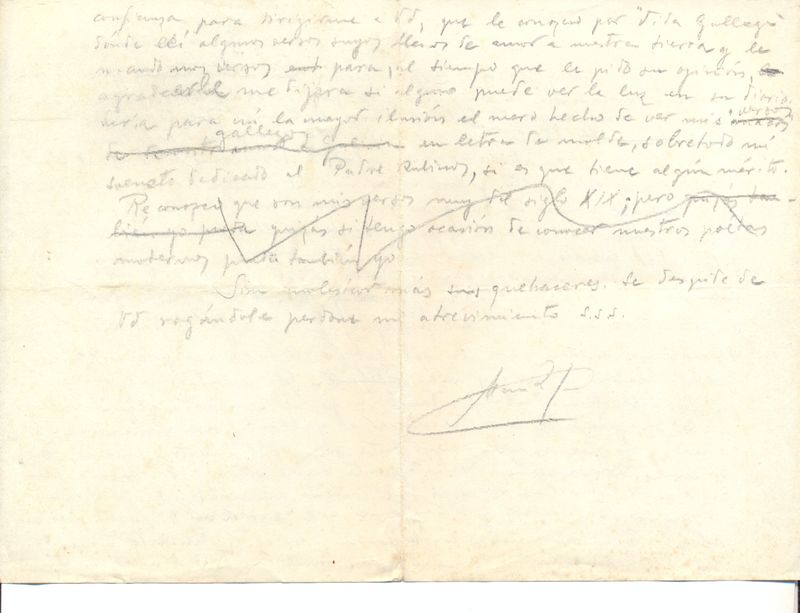 confianza para dirigirme a Vd, que le conozco por "Vida Gallega"
donde lei algunos versos suyos llenos de amor a nuestra tierra y le
mando mis versos para, al tiempo que le pido su opinión,
agradecerle me dijera si alguno puede ver la luz en su diario.
sería para mi la mayor ilusión el mero hecho de ver mis versos
gallegos en letras de molde, sobretodo mi
soneto dedicado al Padre Rubinos, si es que tiene algún mérito.
Reconozco que son mis versos muy del siglo XIX; pero quizás tam-
bién yo para quizás si tengo ocasión de conocer nuestros poetas
modernos pueda también yo
Sin molestar más sus quehaceres. Se despide de
Vd rogándole perdone mi atrevimiento s.s.s.